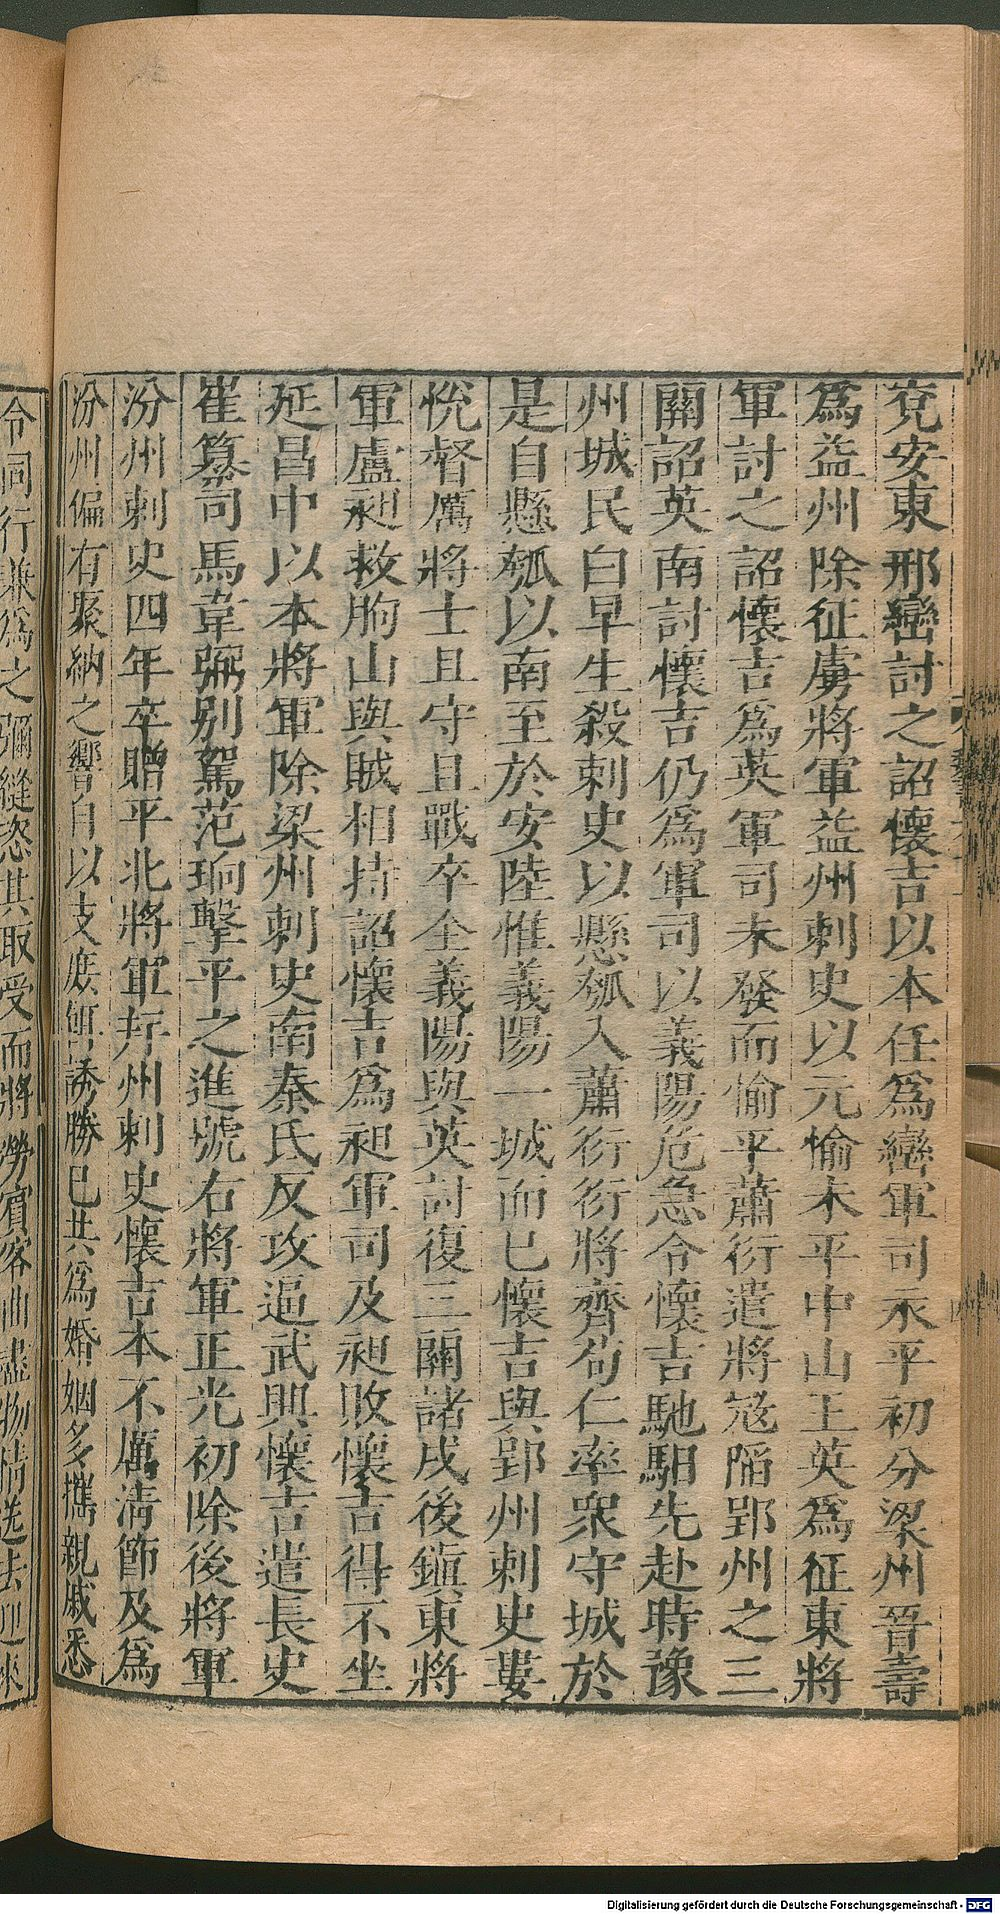 兖安東邢巒討之詔懷吉以本任爲巒軍司永平初分梁州晉壽
爲益州除征虜將軍益州刺史以元愉未平中山王英爲征東將
軍討之詔懷吉爲英軍司未發而愉平蕭衍遣將寇陷郢州之三
關詔英南討懷吉仍爲軍司以義陽危急令懷吉馳馹先赴時豫
州城民白早生殺刺史以懸瓠入蕭衍衍將齊苟仁率衆守城於
是自懸瓠以南至於安陸惟義陽一城而已懷吉與郢州刺史婁
悅督厲將士且守且戰卒全義陽與英討復三關諸戍後鎮東將
軍盧昶救朐山與賊相持詔懷吉爲昶軍司及昶敗懷吉得不坐
延昌中以本將軍除梁州刺史南秦氐反攻逼武興懷吉遣長史
崔纂司馬韋弼別駕范珦擊平之進號右將軍正光初除後將軍
汾州刺史四年卒贈平北將軍并州刺史懷吉本不厲淸節及爲
汾州偏有聚納之響自以支庶餌誘勝己共爲婚姻多攜親戚悉
令同行兼爲之彌縫恣其取受而將勞賓客曲盡物情送去迎來
Digitalisierung gefördert durch die Deutsche Forschungsgemeinschaft - DFG